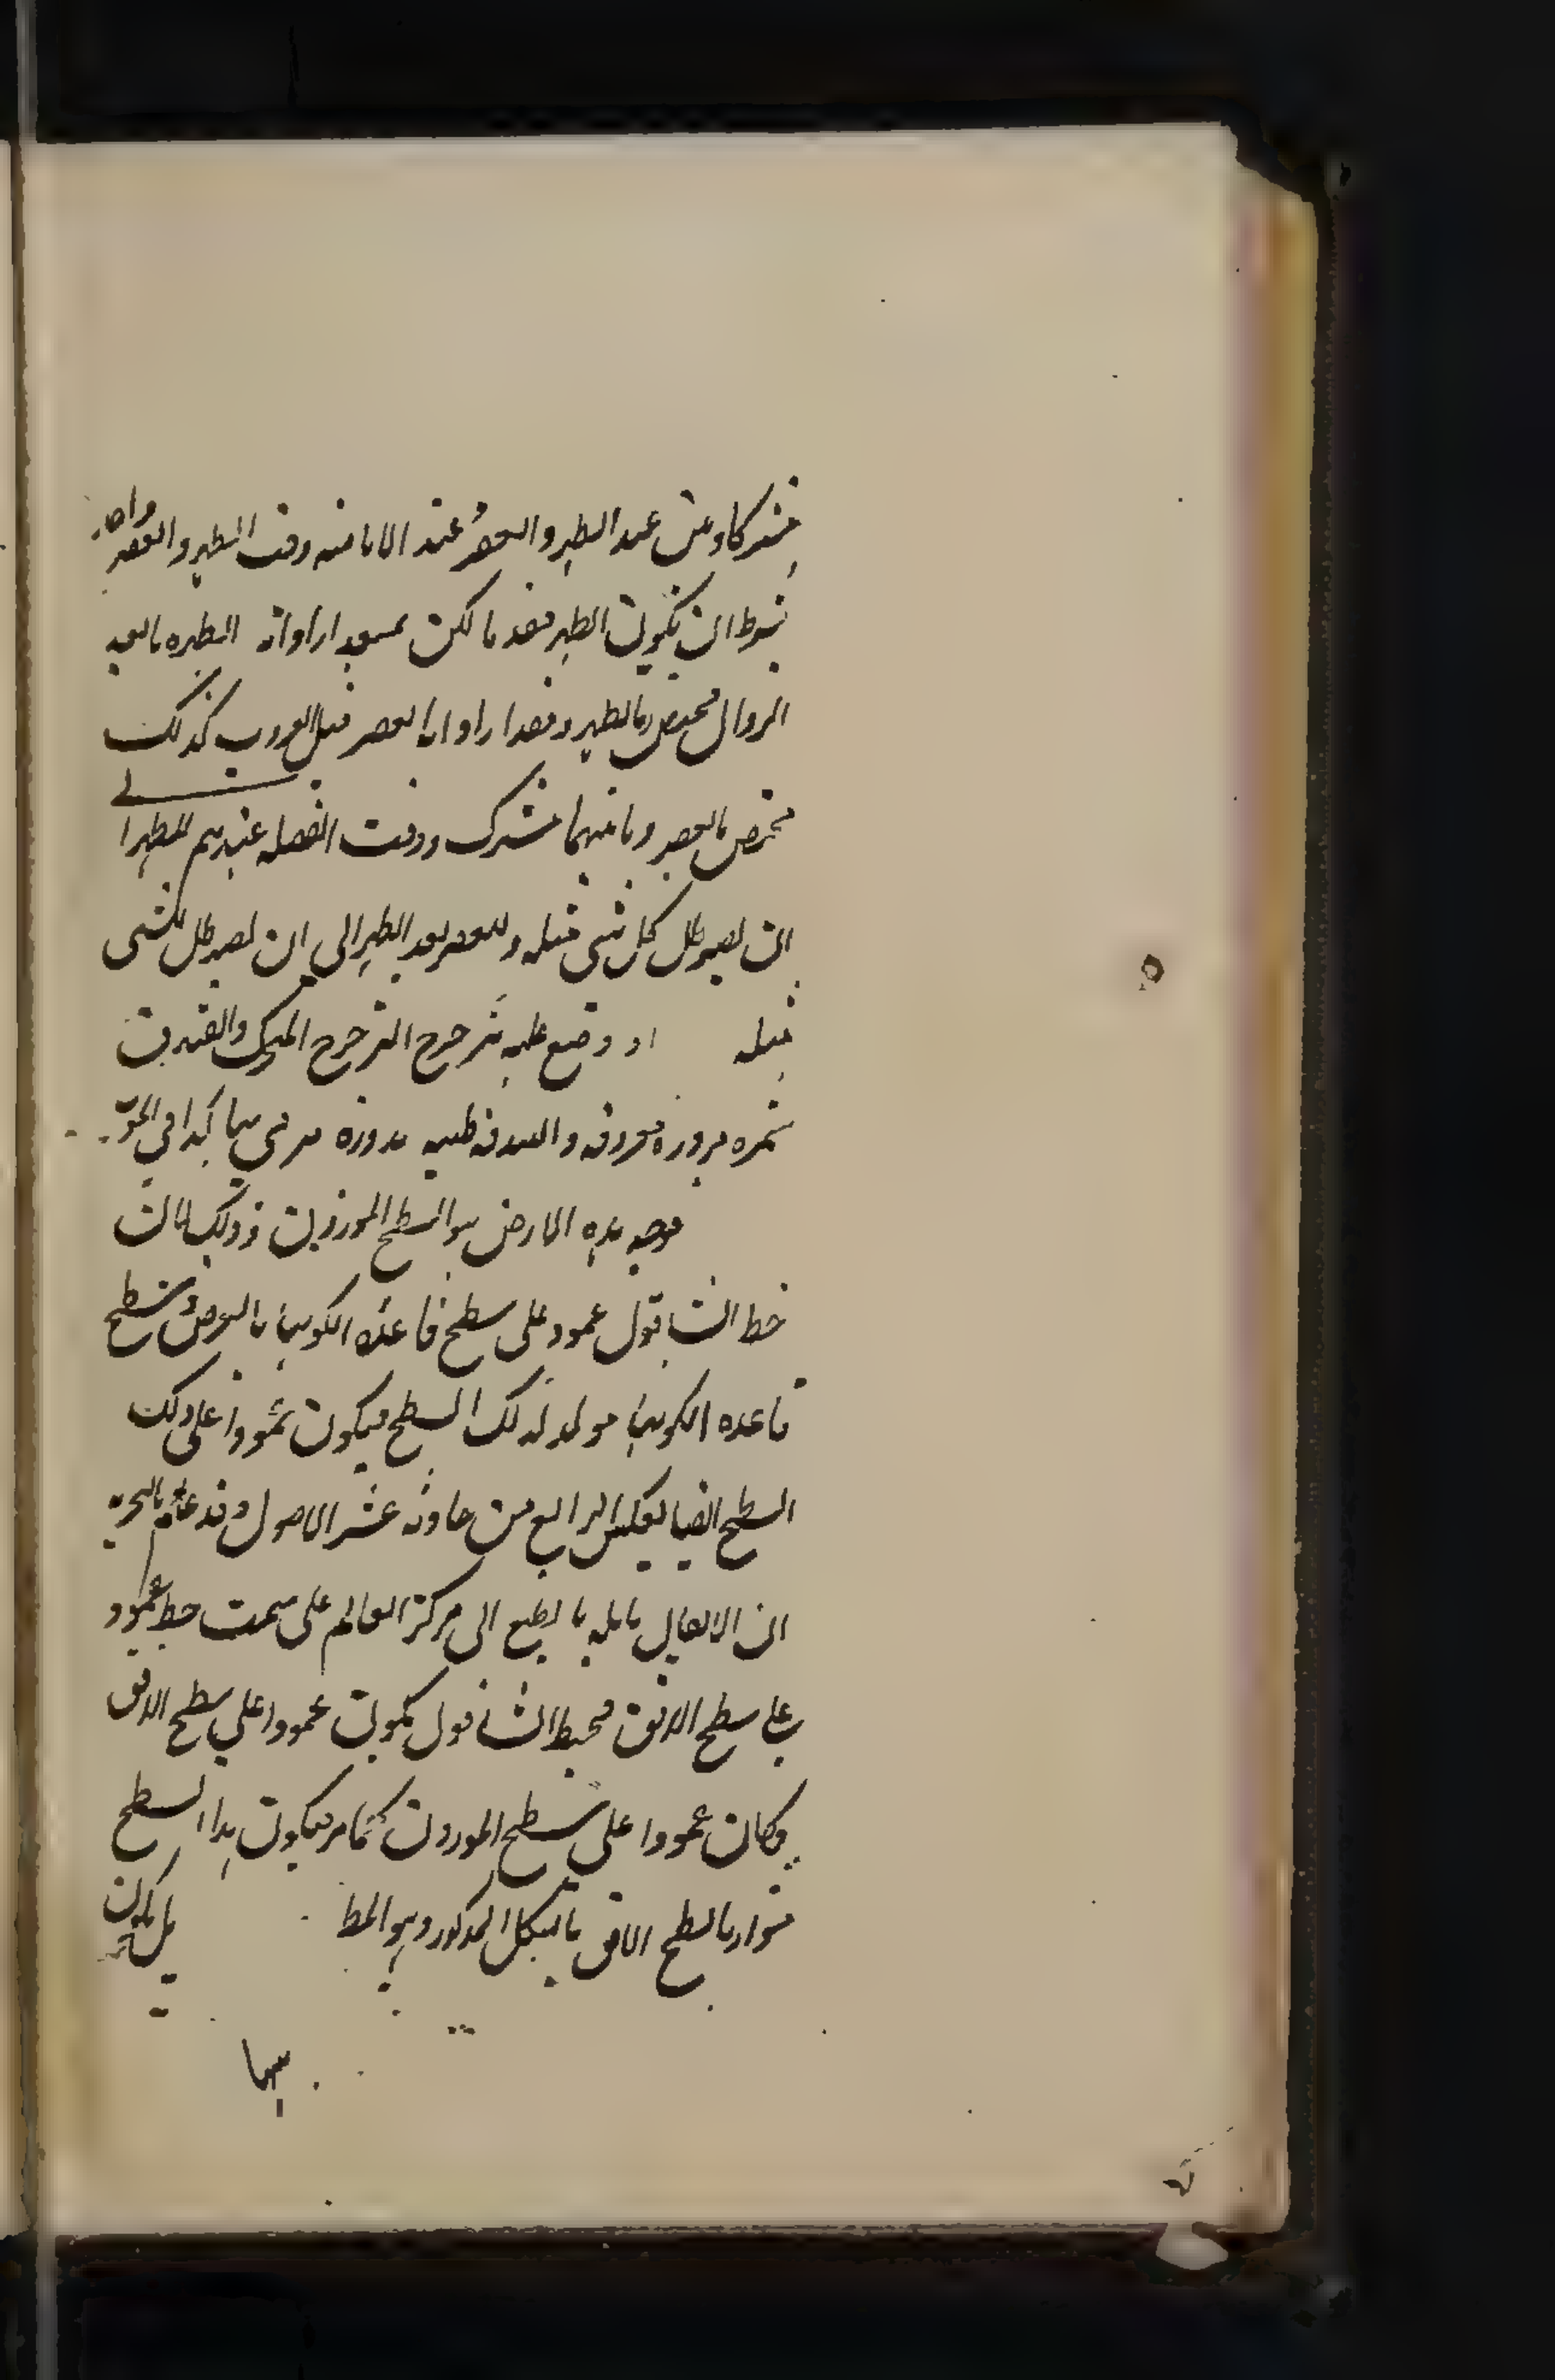 مشتركا وعن عند الظهر والعصر عند الامامية وقت الظهر والعصر واحد
بشرط ان يكون الظهر مقدما لكن بمقدار اداء الظهر بعد
الزوال مختص بالظهر ومقدار اداء العصر قبل الغروب كذلك
مختص بالعصر وما بينهما مشترك ووقت الفضيلة عندهم للظهر الى
ان يصير ظل كل شي مثله وللعصر بعد الظهر الى ان يصير ظل كل شي
مثليه او وضع عليه
معروفة والبندقة طينية مدورة يرمي بها كذا في
فوجه هذه الارض هو السطح الموزون وذلك لان
خط الشاقول عمود على سطح قاعدة الكونيا بالعرض وسطح
قاعدة الكونيا مواز لذلك السطح فيكون عمودا على ذلك
السطح ايضا بعكس الرابع من حادية عشر الاصول وقد علم بالتجربه
ان الاثقال مايله بالطبع الى مركز العالم على سمت خط عمود
على سطح الافق فخيط الشاقول يكون عمودا علي سطح الافق
وكان عمودا على سطح الموزون كما مر فيكون هذا السطح
موازيا لسطح الافق بالشكل المذكور وهو المط